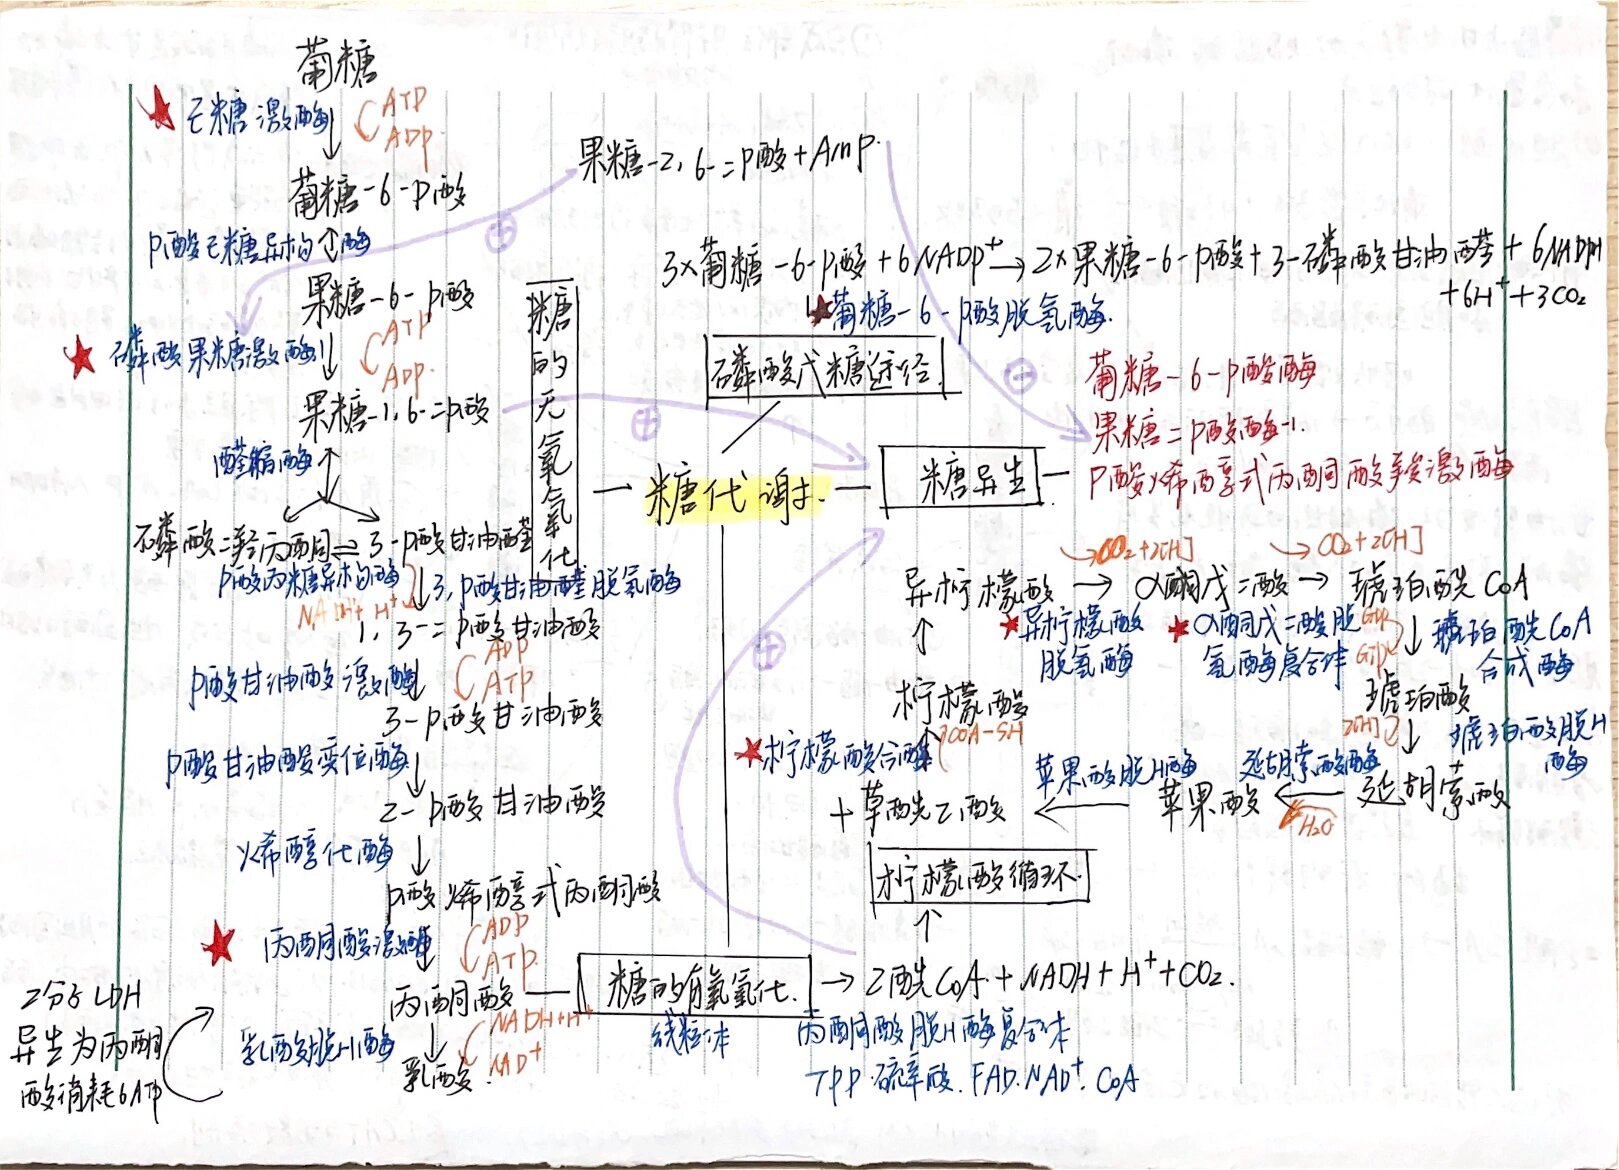 葡糖
己糖激酶
ATP
ADP
葡糖-6-P酸
P酸己糖异构酶
果糖-6-P酸
磷酸果糖激酶1
ATP
ADP
果糖-1,6-二P酸
醛缩酶
磷酸二羟丙酮 ⇌ 3-P酸甘油醛
P酸丙糖异构酶
3,P酸甘油醛脱氢酶
NADH+H⁺
1,3-二P酸甘油酸
P酸甘油酸激酶
ADP
ATP
3-P酸甘油酸
P酸甘油酸变位酶
2-P酸甘油酸
烯醇化酶
P酸烯醇式丙酮酸
丙酮酸激酶
ADP
ATP
丙酮酸
乳酸脱H酶
NADH+H⁺
NAD⁺
乳酸.
2分子LDH
异生为丙酮
酸消耗6ATP
糖的无氧氧化
糖代谢.
果糖-2,6-二P酸+AMP.
⊕
⊖
⊕
⊕
3×葡糖-6-P酸+6NADP⁺→2×果糖-6-P酸+3-磷酸甘油醛+6NADPH
+6H⁺+3CO₂
葡糖-6-P酸脱氢酶.
磷酸戊糖途径.
糖异生
葡糖-6-P酸酶
果糖二P酸酶-1.
P酸烯醇式丙酮酸羧激酶
→CO₂+2[H] →CO₂+2[H]
异柠檬酸 → α酮戊二酸 → 琥珀酰CoA
异柠檬酸
脱氢酶
α酮戊二酸脱
氢酶复合体
GDP
GTP
琥珀酰CoA
合成酶
柠檬酸
琥珀酸
COA-SH
2[H]
琥珀酸脱H
酶
柠檬酸合酶
苹果酸脱H酶
延胡索酸酶
+草酰乙酸 ← 苹果酸 ← 延胡索酸
H₂O
柠檬酸循环.
糖的有氧氧化. → 乙酰CoA+NADH+H⁺+CO₂.
线粒体
丙酮酸脱H酶复合体
TPP.硫辛酸.FAD.NAD⁺.CoA